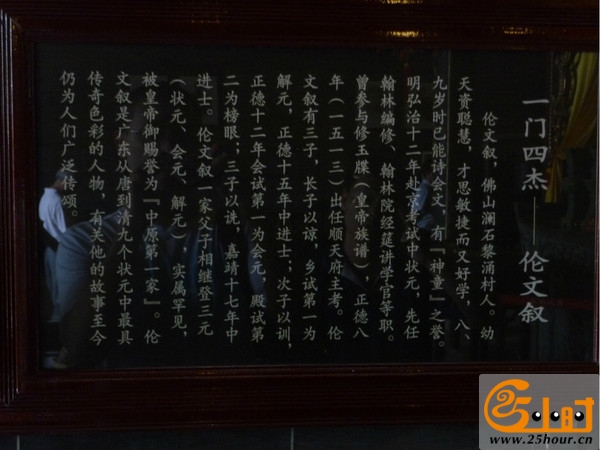 一门四杰——伦文叙
伦文叙，佛山澜石黎涌村人。幼
天资聪慧，才思敏捷而又好学，八、
九岁时已能诗会文，有『神童』之誉。
明弘治十二年赴京考试中状元，先任
翰林编修、翰林院经筵讲学官等职。
曾参与修玉牒（皇帝族谱），正德八
年（一五一三）出任顺天府主考。伦
文叙有三子，长子以谅，乡试第一为
解元，正德十五年中进士；次子以训，
正德十二年会试第一为会元，殿试第
二为榜眼；三子以诜，嘉靖十七年中
进士。伦文叙一家父子相继登三元
（状元、会元、解元），实属罕见，
被皇帝御赐誉为『中原第一家』。伦
文叙是广东从唐到清九个状元中最具
传奇色彩的人物，有关他的故事至今
仍为人们广泛传颂。
25小时
www.25hour.cn